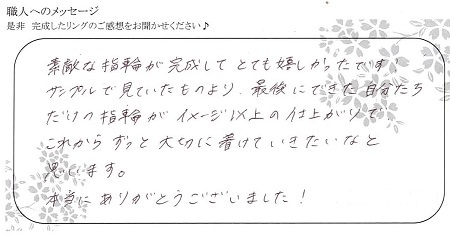 職人へのメッセージ
是非 完成したリングのご感想をお聞かせください♪
素敵な指輪が完成して とても嬉しかったです!
サンプルで見ていたものより、最後にできた自分たち
だけの指輪が イメージ以上の仕上がりで
これから ずっと大切に着けていきたいなと
思います。
本当に ありがとうございました!